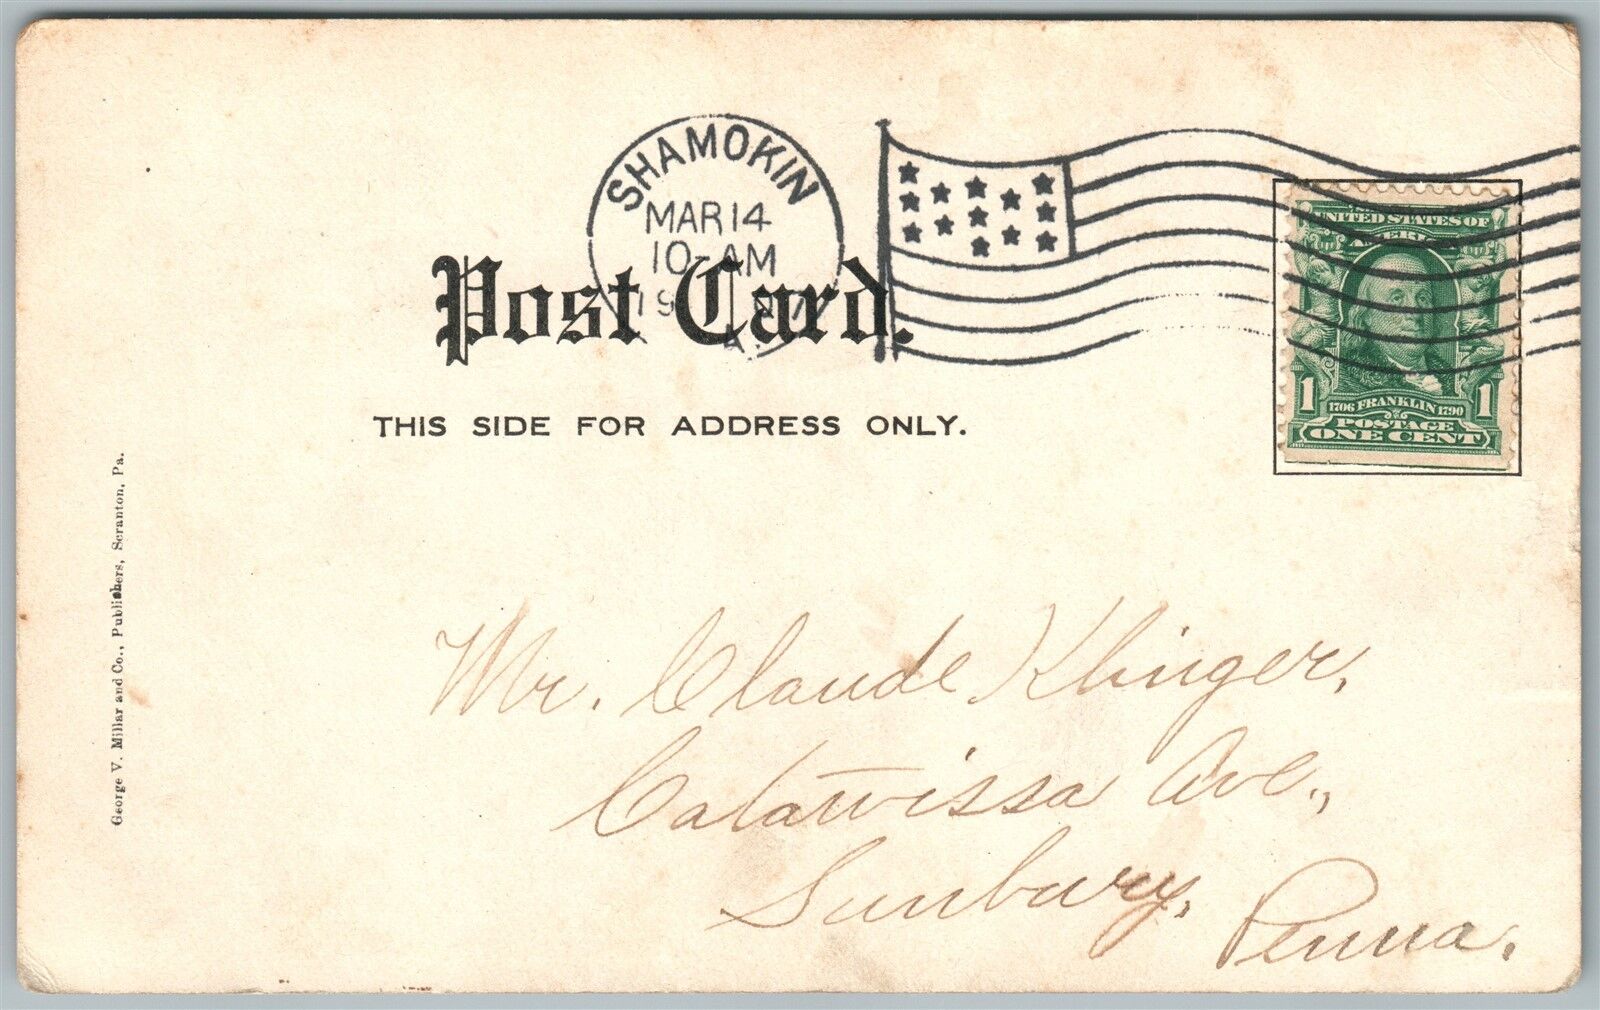 SHAMOKIN
MAR 14
10-AM
19
Post Card.
THIS SIDE FOR ADDRESS ONLY.
UNITED STATES OF
AMERICA
1706 FRANKLIN 1790
1 POSTAGE 1
ONE CENT
George V. Millar and Co., Publishers, Scranton, Pa.
Mr. Claude Klinger,
Catawissa Ave.,
Sunbury,
Penna.